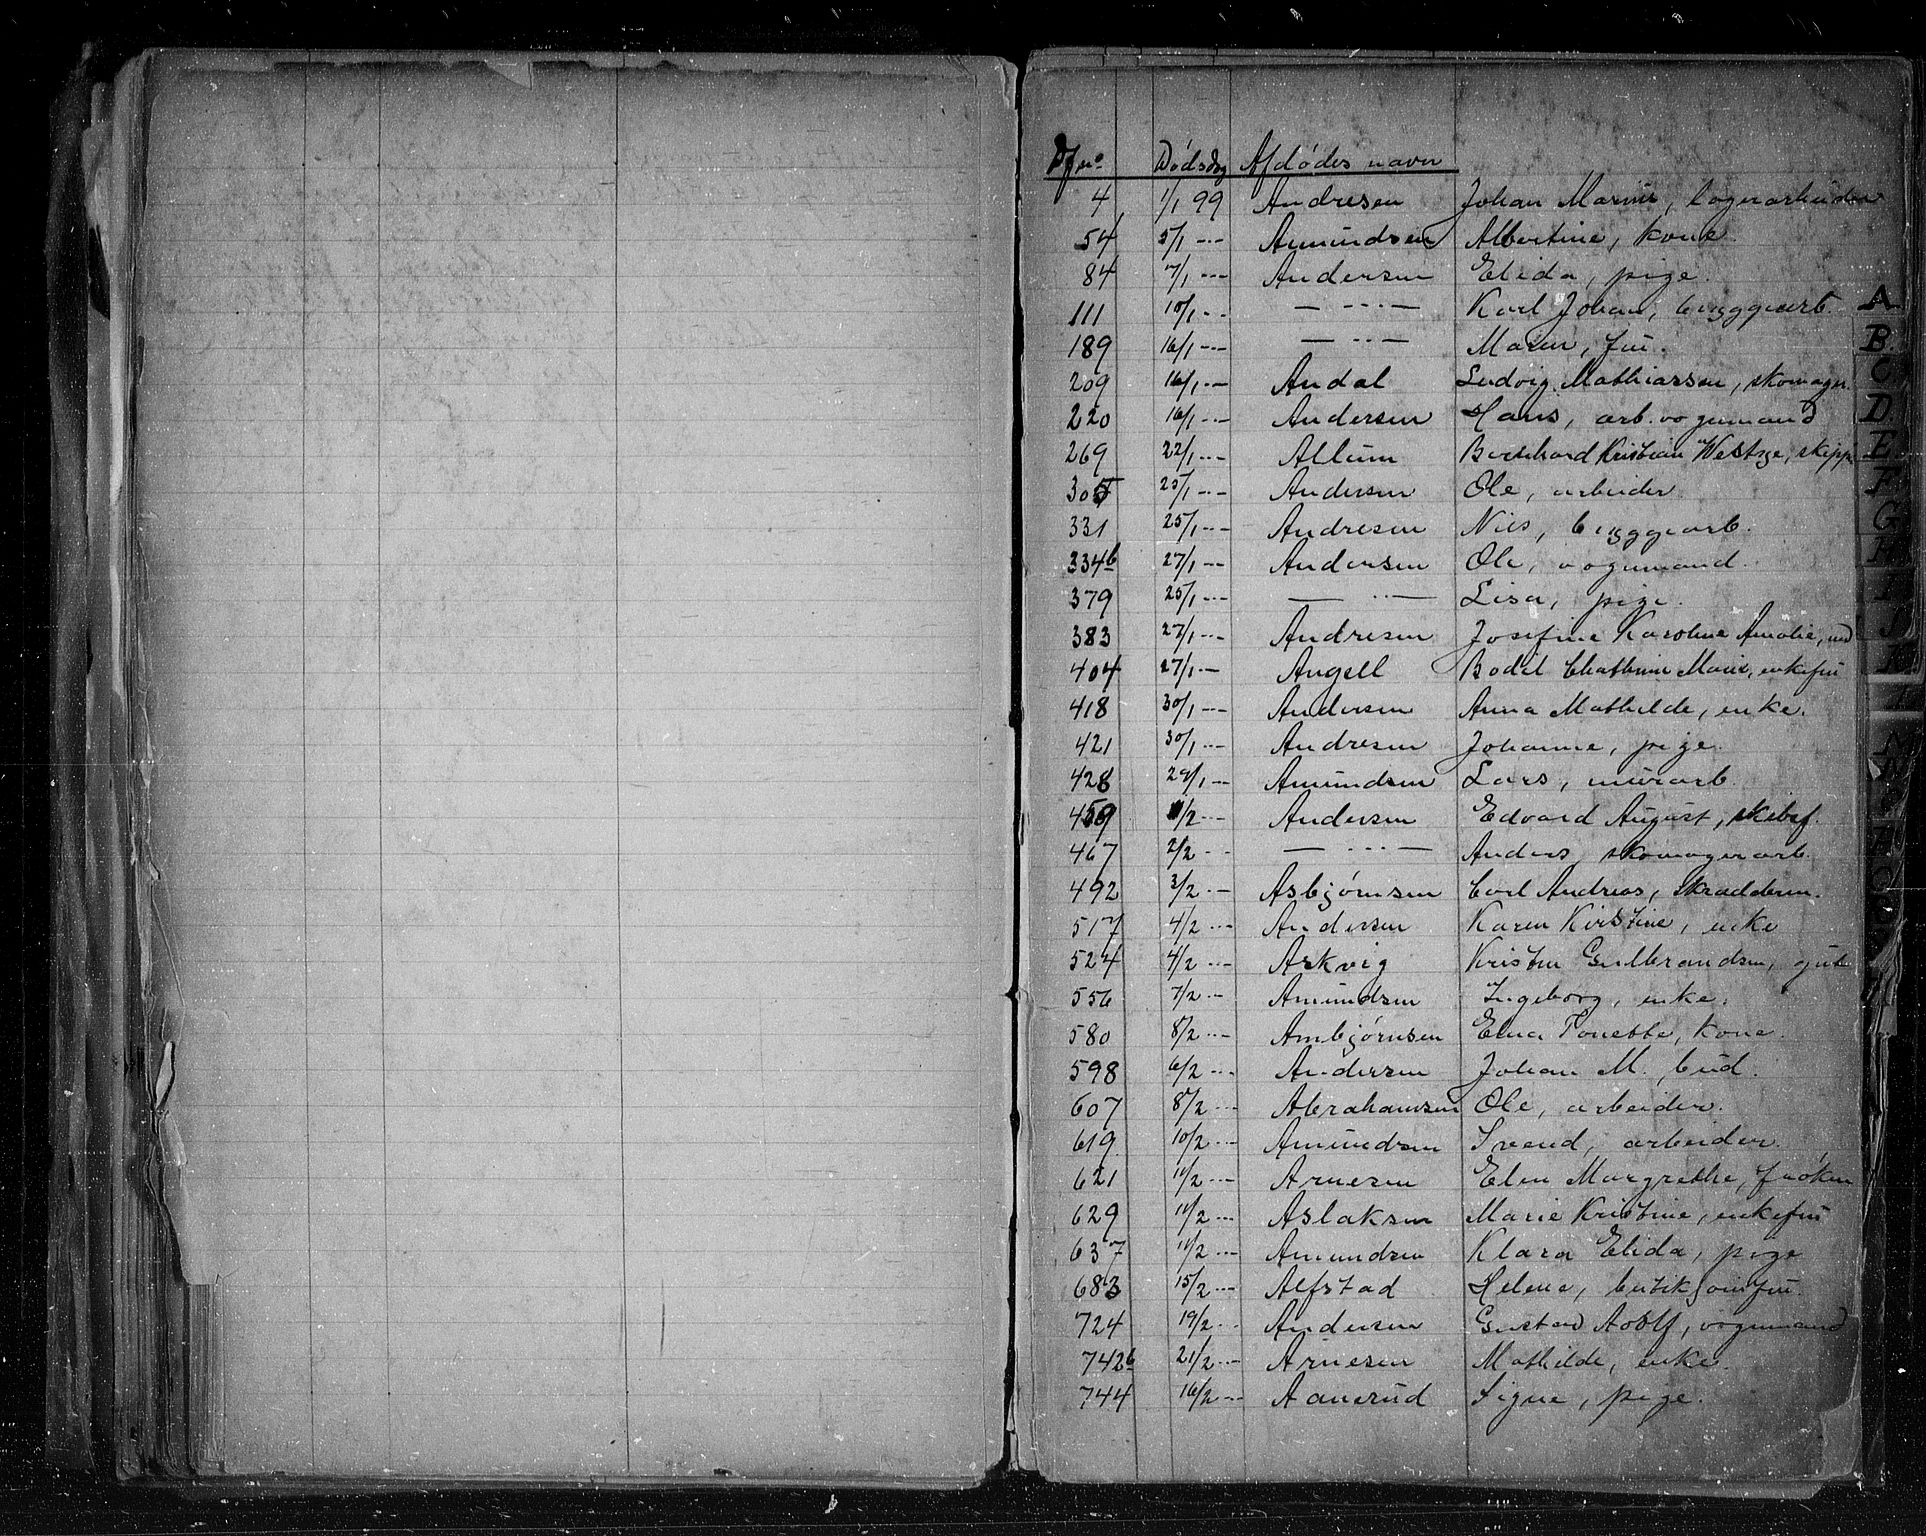 Df no Dødsdg Afdødes navn
4 1/1 99 Andresen Johan Marius, bageriarbeider
54 5/1 -..- Amundsen Albertine, kone
84 7/1 -..- Andersen Elida, pige.
111 10/1 -..- — -..- — Karl Johan, bryggearb.
189 16/1 -..- — -..- — Maren, fru.
209 16/1 -..- Andal Ludvig Mathiassen, skomager.
220 16/1 -..- Andersen Hans, arb. vognmand
269 22/1 -..- Allum Bernhard Kristian Westye, skipp
305 25/1 -..- Andersen Ole, arbeider
331 25/1 -..- Andresen Nils, bryggearb.
334b 27/1 -..- Andersen Ole, vognmand.
379 25/1 -..- — -..- — Lisa, pige.
383 27/1 -..- Andresen Josefine Karoline Amalie,
404 27/1 -..- Angell Bodil Chathrine Marie, enkefru
418 30/1 -..- Andersen Anna Mathilde, enke.
421 30/1 -..- Andresen Johanne, pige.
428 29/1 -..- Amundsen Lars, murarb.
459 1/2 -..- Andersen Edvard August, skibsf.
467 2/2 -..- — -..- — Anders, skomagerarb.
492 3/2 -..- Asbjørnsen Carl Andreas, skrædderm.
517 4/2 -..- Andersen Karen Kirstine, enke
524 4/2 -..- Askvig Kristen Gulbrandsen, gut
556 7/2 -..- Amundsen Ingeborg, enke.
580 8/2 -..- Ambjørnsen Elna Tonette, kone.
598 6/2 -..- Andersen Johan M., bud.
607 8/2 -..- Abrahamsen Ole, arbeider.
619 10/2 -..- Amundsen Svend, arbeider.
621 11/2 -..- Arnesen Elen Margrethe, frøken
629 11/2 -..- Aslaksen Marie Kristine, enkefru
637 11/2 -..- Amundsen Klara Elida, pige
683 15/2 -..- Alfstad Helene, butikjomfru.
724 19/2 -..- Andersen Gustav Adolf, vognmand
742b 21/2 -..- Arnesen Mathilde, enke.
744 16/2 -..- Aanerud Signe, pige.
A
B.
C
D.
E
F
G
H
I
J
K